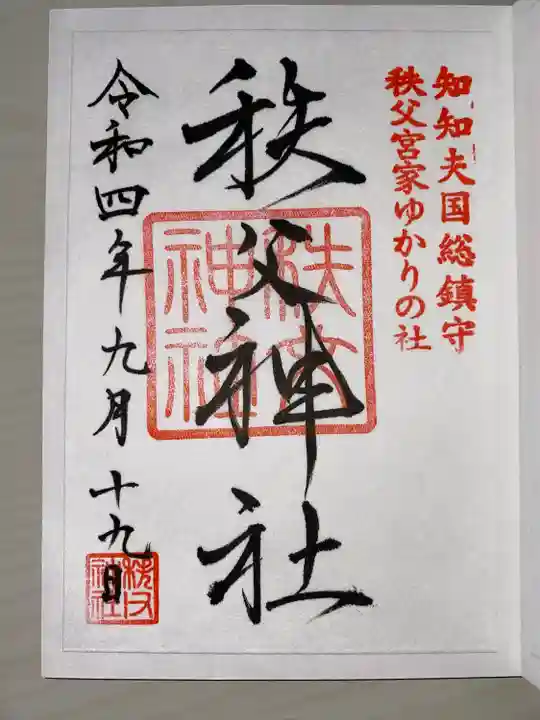 知知夫国総鎮守
秩父宮家ゆかりの社
秩父神社
秩父神社
令和四年九月十九日
秩父神社